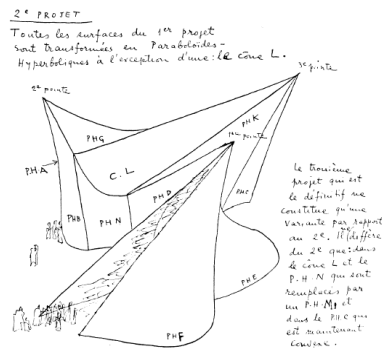 2e PROJET
Toutes les surfaces du 1er projet
sont transformées en Paraboloïdes-
Hyperboliques à l'exception d'une: le cône L.
3e pointe
2e pointe
1ère pointe
PHK
PHG
PHA
C.L
PHC
PHD
PHB
PHN
PHE
PHF
Le troisième
projet qui est
le définitif ne
constitue qu'une
variante par rapport
au 2e. Il ne diffère
du 2e que: dans
le cône L et le
P.H.N qui sont
remplacés par
un P.H.M, et
dans le PHC qui
est maintenant
convexe.